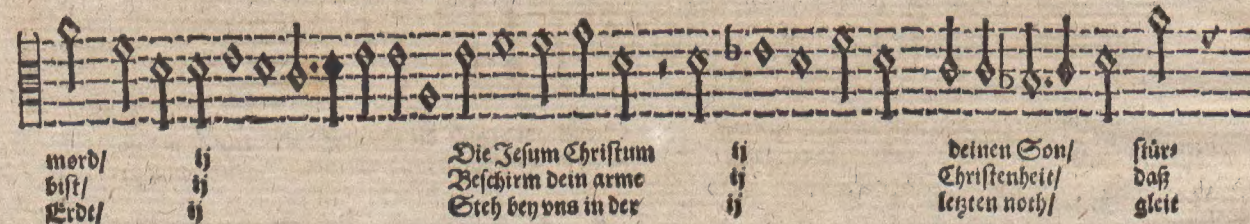 mord/ ij Die Jesum Christum ij deinen Son/ stür⸗
bist/ ij Beschirm dein arme ij Christenheit/ daß
Erdt/ ij Steh bey vns in der ij letzten noth/ gleit